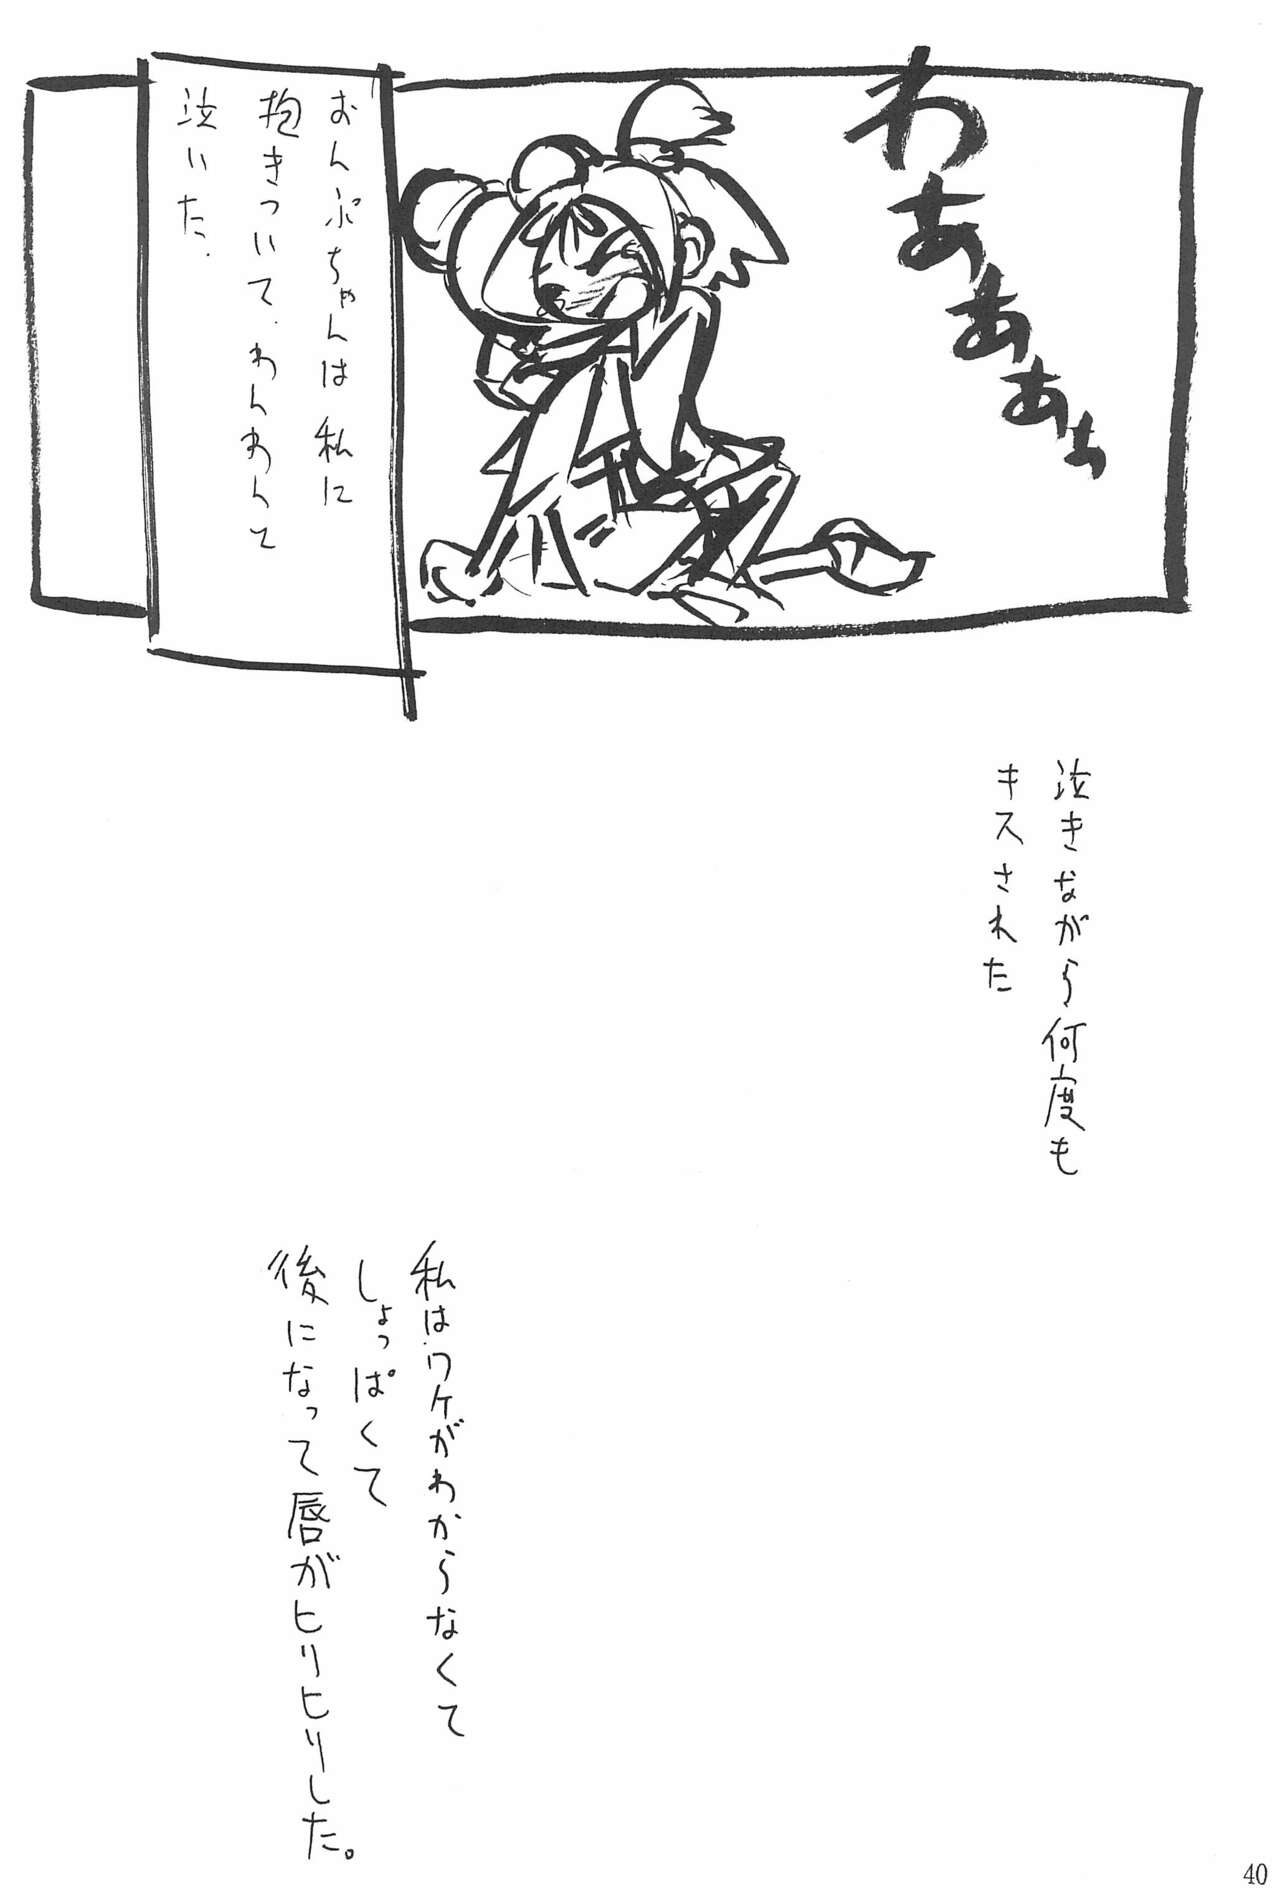 わあぁぁぁ
おんぷちゃんは 私に
抱きついて、わんわんて
泣いた.
泣きながら何度も
キスされた
私はワケがわからなくて
しょっぱくて
後になって唇がヒリヒリした。
40